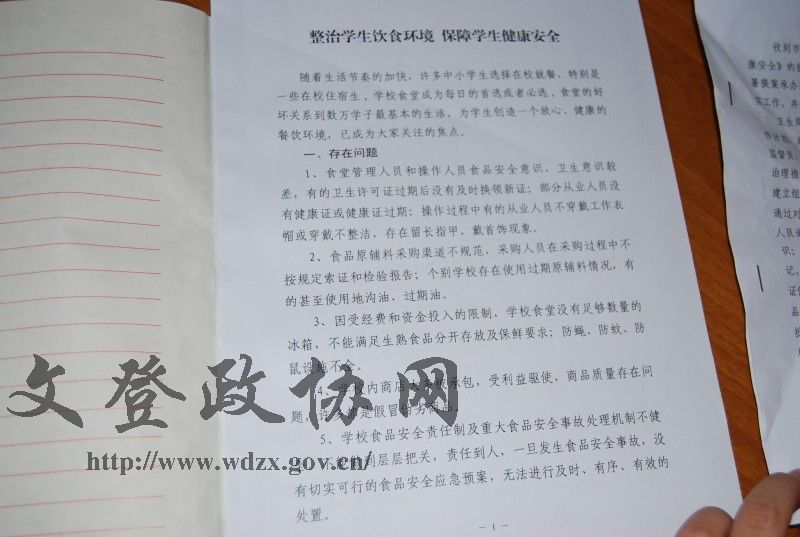 整治学生饮食环境 保障学生健康安全
随着生活节奏的加快，许多中小学生选择在校就餐，特别是
一些在校住宿生，学校食堂成为每日的首选或者必选，食堂的好
坏关系到数万学子最基本的生活，为学生创造一个放心、健康的
餐饮环境，已成为大家关注的焦点。
一、存在问题
1、食堂管理人员和操作人员食品安全意识、卫生意识较
差，有的卫生许可证过期后没有及时换领新证；部分从业人员没
有健康证或健康证过期；操作过程中有的从业人员不穿戴工作衣
帽或穿戴不整洁，存在留长指甲、戴首饰现象。
2、食品原辅料采购渠道不规范，采购人员在采购过程中不
按规定索证和检验报告；个别学校存在使用过期原辅料情况，有
的甚至使用地沟油、过期油。
3、因受经费和资金投入的限制，学校食堂没有足够数量的
冰箱，不能满足生熟食品分开存放及保鲜要求；防蝇、防蚊、防
鼠设施不全。
4、学校内商店大多被承包，受利益驱使，商品质量存在问
题，许多都是假冒伪劣商品。
5、学校食品安全责任制及重大食品安全事故处理机制不健
到层层把关，责任到人，一旦发生食品安全事故，没
有切实可行的食品安全应急预案，无法进行及时、有序、有效的
处置。
－1－
文登政协网
http://www.wdzx.gov.cn/
收到市
康安全》的
署提案承办
实工作，并
卫生局
作仿培
监督员、
治理措
建立组
通过对
人员
识；
记，
证
品